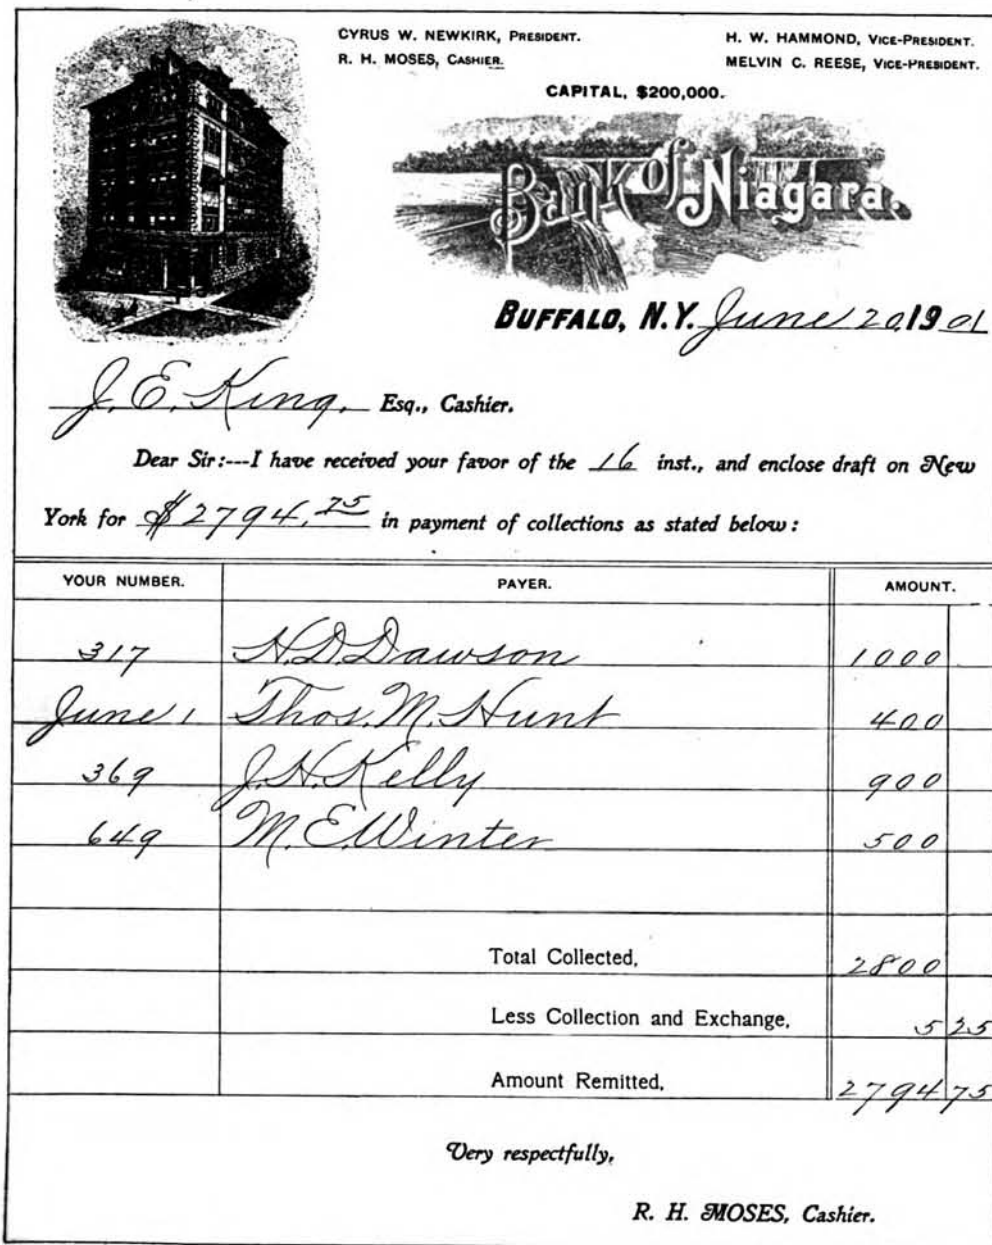 CYRUS W. NEWKIRK, PRESIDENT.
H. W. HAMMOND, VICE-PRESIDENT.
R. H. MOSES, CASHIER.
MELVIN C. REESE, VICE-PRESIDENT.
CAPITAL, $200,000.
Bank of Niagara.
BUFFALO, N.Y. June 20, 1901
J. E. King, Esq., Cashier.
Dear Sir:---I have received your favor of the 16 inst., and enclose draft on New
York for $2794.75 in payment of collections as stated below:
YOUR NUMBER. PAYER. AMOUNT.
317 N. D. Dawson 1000
June 1 Thos. M. Hunt 400
369 J. H. Kelly 900
649 M. E. Winter 500
Total Collected, 2800
Less Collection and Exchange, 5 25
Amount Remitted, 2794 75
Very respectfully,
R. H. MOSES, Cashier.